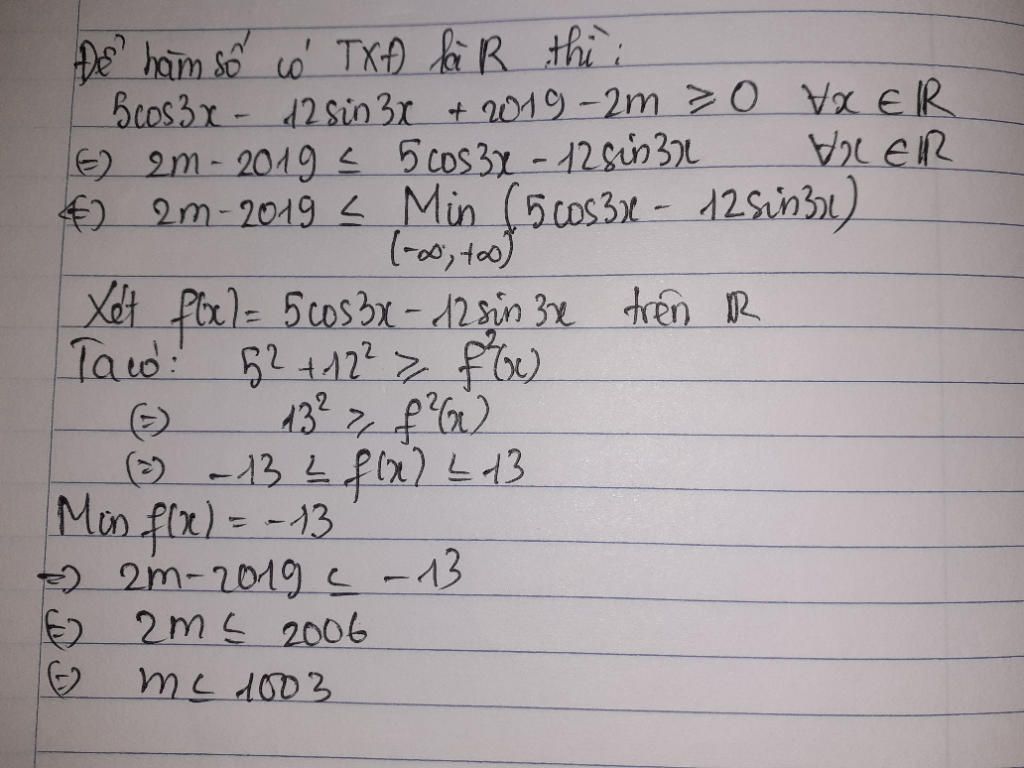 Để hàm số có TXĐ là R thì:
5cos3x - 12sin3x + 2019 - 2m ≥ 0 ∀x ∈ ℝ
⇔ 2m - 2019 ≤ 5cos3x - 12sin3x ∀x ∈ ℝ
⇔ 2m - 2019 ≤ Min (5cos3x - 12sin3x)
(-∞; +∞)
Xét f(x) = 5cos3x - 12sin3x trên ℝ
Ta có: 5² + 12² ≥ f²(x)
⇔ 13² ≥ f²(x)
⇔ -13 ≤ f(x) ≤ 13
Min f(x) = -13
⇒ 2m - 2019 ≤ -13
⇔ 2m ≤ 2006
⇔ m ≤ 1003